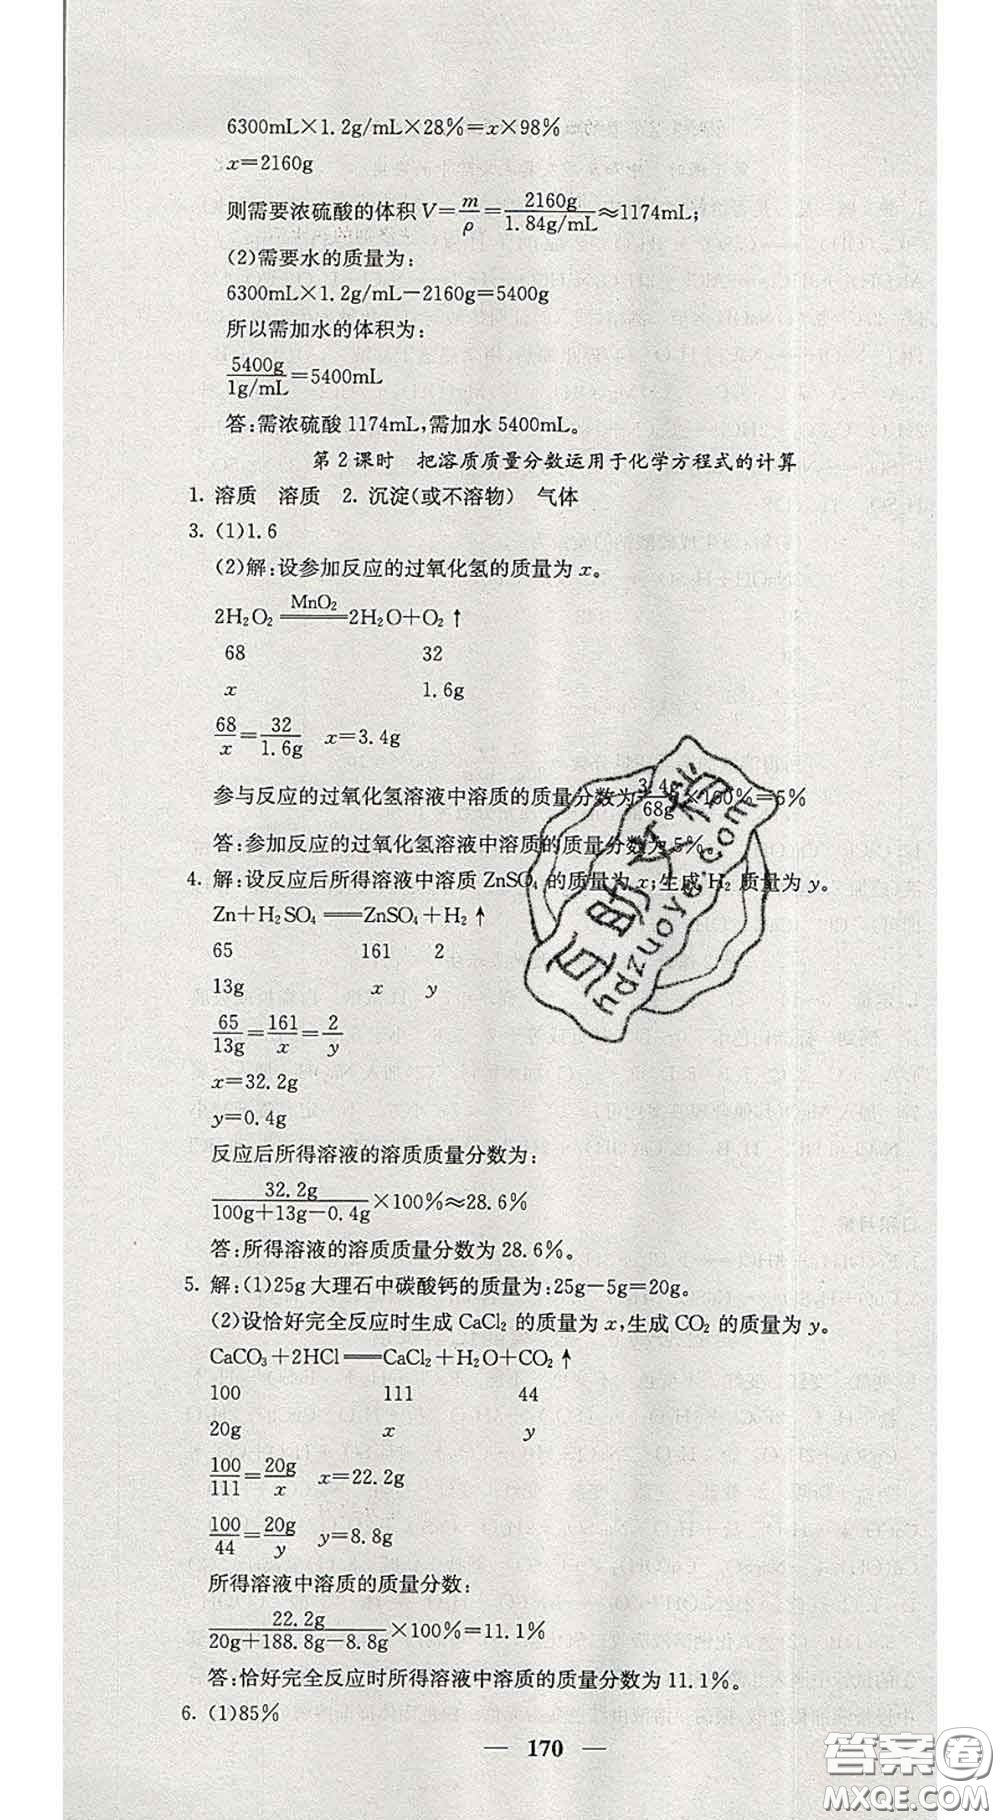 6300mL×1.2g/mL×28%=x×98%
x=2160g
则需要浓硫酸的体积V=m/ρ=2160g/1.84g/mL≈1174mL;
(2)需要水的质量为:
6300mL×1.2g/mL-2160g=5400g
所以需加水的体积为:
5400g/1g/mL=5400mL
答:需浓硫酸1174mL,需加水5400mL。
第2课时 把溶质质量分数运用于化学方程式的计算
1. 溶质 溶质 2. 沉淀(或不溶物) 气体
3. (1)1.6
(2)解:设参加反应的过氧化氢的质量为x。
2H₂O₂ =MnO₂= 2H₂O+O₂↑
68 32
x 1.6g
68/x=32/1.6g x=3.4g
参与反应的过氧化氢溶液中溶质的质量分数为3.4g/68g×100%=5%
答:参加反应的过氧化氢溶液中溶质的质量分数为5%。
4. 解:设反应后所得溶液中溶质ZnSO₄的质量为x;生成H₂质量为y。
Zn+H₂SO₄══ZnSO₄+H₂↑
65 161 2
13g x y
65/13g=161/x=2/y
x=32.2g
y=0.4g
反应后所得溶液的溶质质量分数为:
32.2g/100g+13g-0.4g×100%≈28.6%
答:所得溶液的溶质质量分数为28.6%。
5. 解:(1)25g大理石中碳酸钙的质量为:25g-5g=20g。
(2)设恰好完全反应时生成CaCl₂的质量为x,生成CO₂的质量为y。
CaCO₃+2HCl══CaCl₂+H₂O+CO₂↑
100 111 44
20g x y
100/111=20g/x x=22.2g
100/44=20g/y y=8.8g
所得溶液中溶质的质量分数:
22.2g/20g+188.8g-8.8g×100%=11.1%
答:恰好完全反应时所得溶液中溶质的质量分数为11.1%。
6. (1)85%
— 170 —
答案圈
MXQE.COM